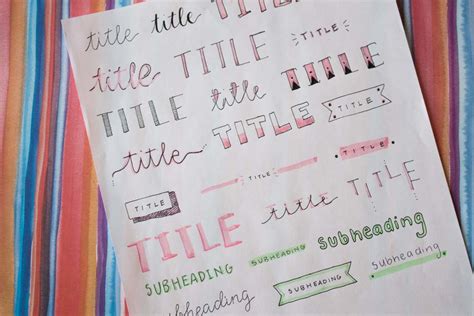 title title TITLE
title TITLE TITLE
TITLE title TITLE TITLE
title TITLE TITLE
TITLE title TITLE
TITLE subheading
SUBHEADING SUBHEADING subheading
subheading SUBHEADING